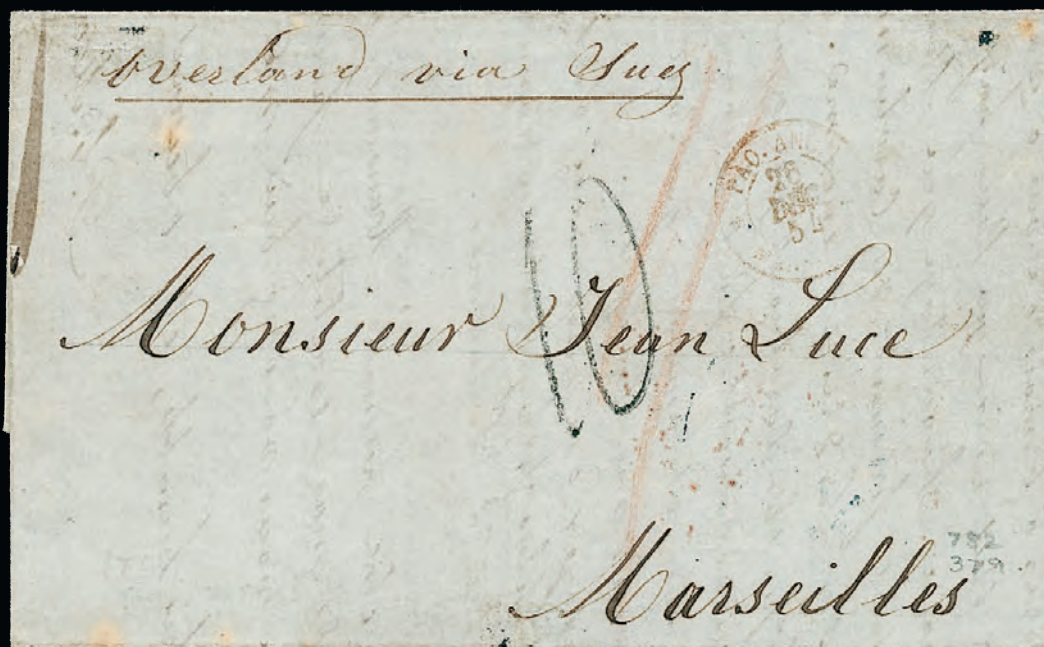 overland via Suez
PAQ. ANG.
26
DEC
54
10
Monsieur Jean Luce
Marseilles
782
379